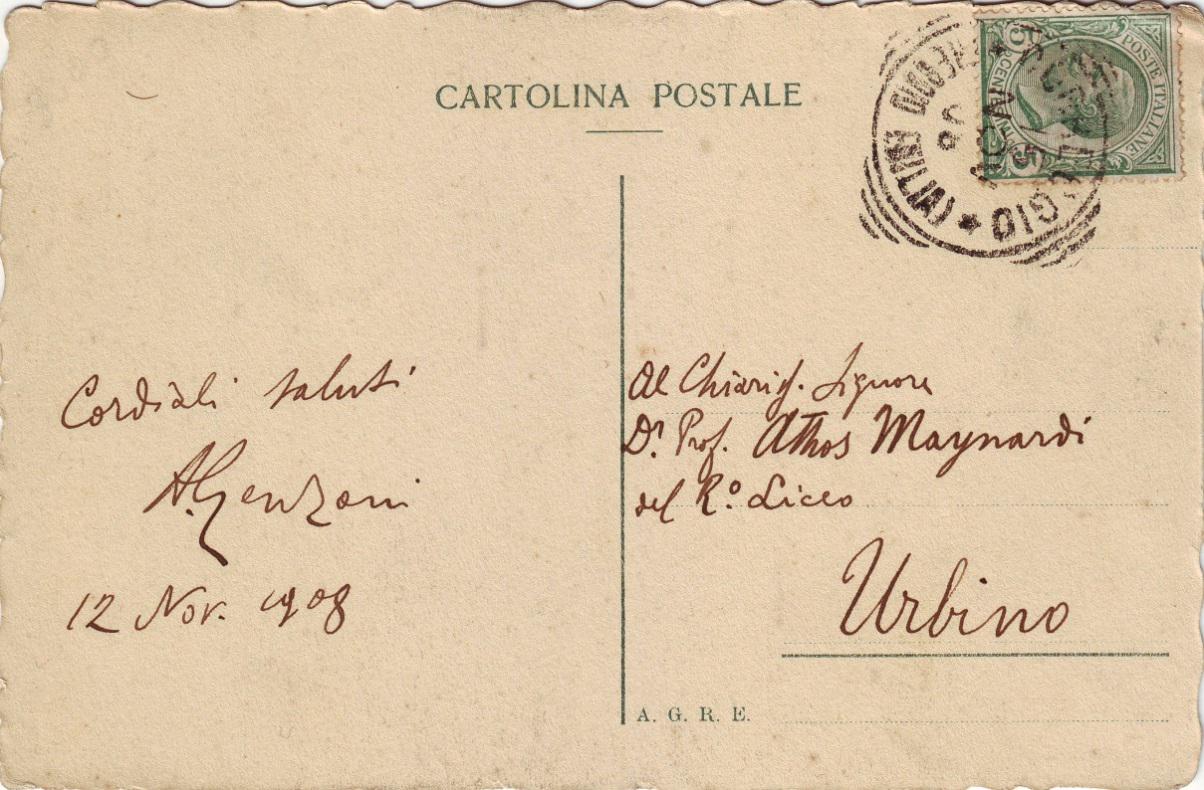 CARTOLINA POSTALE
POSTE ITALIANE
5 CENTESIMI 5
REGGIO EMILIA)
08
Cordiali saluti
A. Genzoni
12 Nov. 1908
Al Chiariſ. Signore
Dr. Prof. Athos Maynardi
del R.º Liceo
Urbino
A. G. R. E.